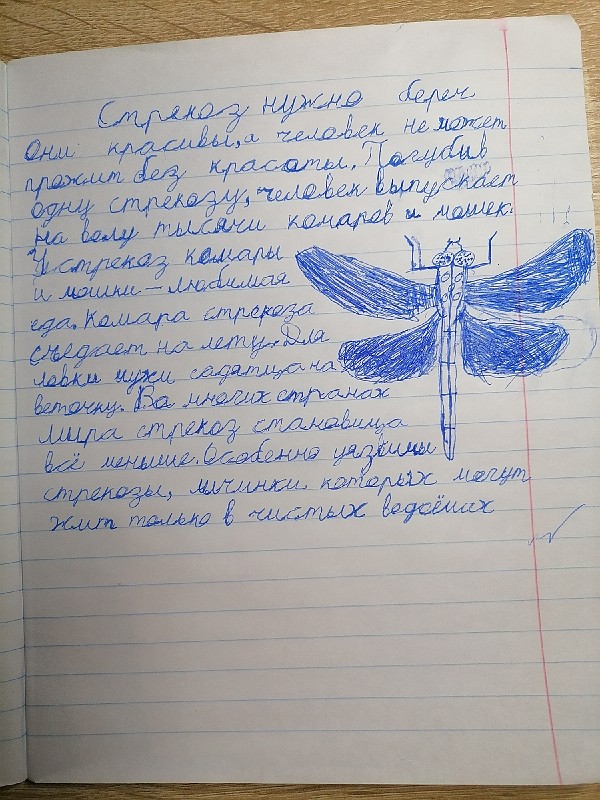 Стрекоз нужно береч
Они красивы, а человек не может
прожит без красоты. Погубив
одну стрекозу, человек выпускает
на волу тысячи комаров и мошек.
У стрекоз комары
и мошки – любимая
еда. Комара стрекоза
съедает на лету. Для
ловки мухи садятца на
веточку. Во многих странах
мира стрекоз становица
всё меньше. Особенно уязвимы
стрекозы, личинки которых могут
жит только в чистых водоёмах